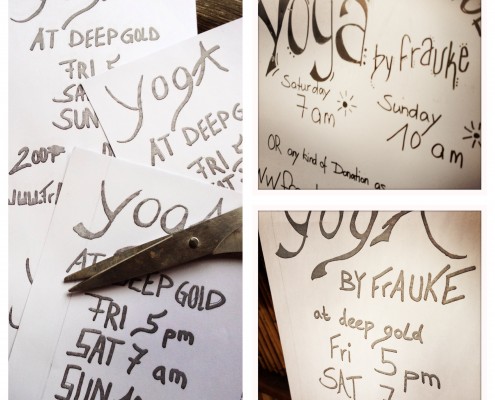 AT DEEP GOLD
FRI 5
SUN
200F
yoga
AT DEEP GOLD
FRI 5
yoga
AT DEEP GOLD
FRI 5 pm
SAT 7 am
SUN
yoga by frauke
Saturday
7 am
Sunday
10 am
OR any kind of Donation as
yoga
BY FRAUKE
at deep gold
Fri 5 pm
SAT 7